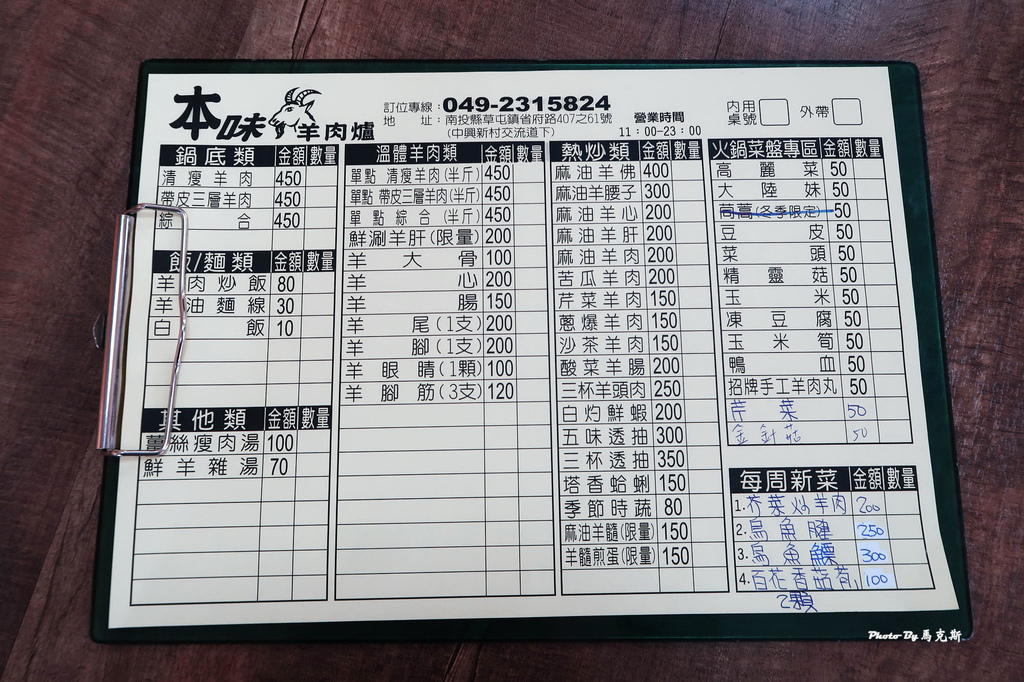 本味羊肉爐
訂位專線：049-2315824
地　　址：南投縣草屯鎮省府路407之61號
(中興新村交流道下)
營業時間
11：00-23：00
內用桌號
外帶
鍋底類 金額 數量
清瘦羊肉 450
帶皮三層羊肉 450
綜合 450
飯/麵類 金額 數量
羊肉炒飯 80
羊油麵線 30
白飯 10
其他類 金額 數量
薑絲瘦肉湯 100
鮮羊雜湯 70
溫體羊肉類 金額 數量
單點 清瘦羊肉(半斤) 450
單點 帶皮三層羊肉(半斤) 450
單點 綜合 (半斤) 450
鮮涮羊肝(限量) 200
羊大骨 100
羊心 200
羊腸 150
羊尾(1支) 200
羊腳(1支) 200
羊眼睛(1顆) 100
羊腳筋(3支) 120
熱炒類 金額 數量
麻油羊佛 400
麻油羊腰子 300
麻油羊心 200
麻油羊肝 200
麻油羊肉 200
苦瓜羊肉 200
芹菜羊肉 150
蔥爆羊肉 150
沙茶羊肉 150
酸菜羊腸 200
三杯羊頭肉 250
白灼鮮蝦 200
五味透抽 300
三杯透抽 350
塔香蛤蜊 150
季節時蔬 80
麻油羊髓(限量) 150
羊髓煎蛋(限量) 150
火鍋菜盤專區 金額 數量
高麗菜 50
大陸妹 50
茼蒿(冬季限定) 50
豆皮 50
菜頭 50
精靈菇 50
玉米 50
凍豆腐 50
玉米筍 50
鴨血 50
招牌手工羊肉丸 50
芹菜 50
金針菇 50
每周新菜 金額 數量
1.芥菜炒羊肉 200
2.烏魚腱 250
3.烏魚鰾 300
4.百花香菇 100
2顆
Photo By 馬克斯